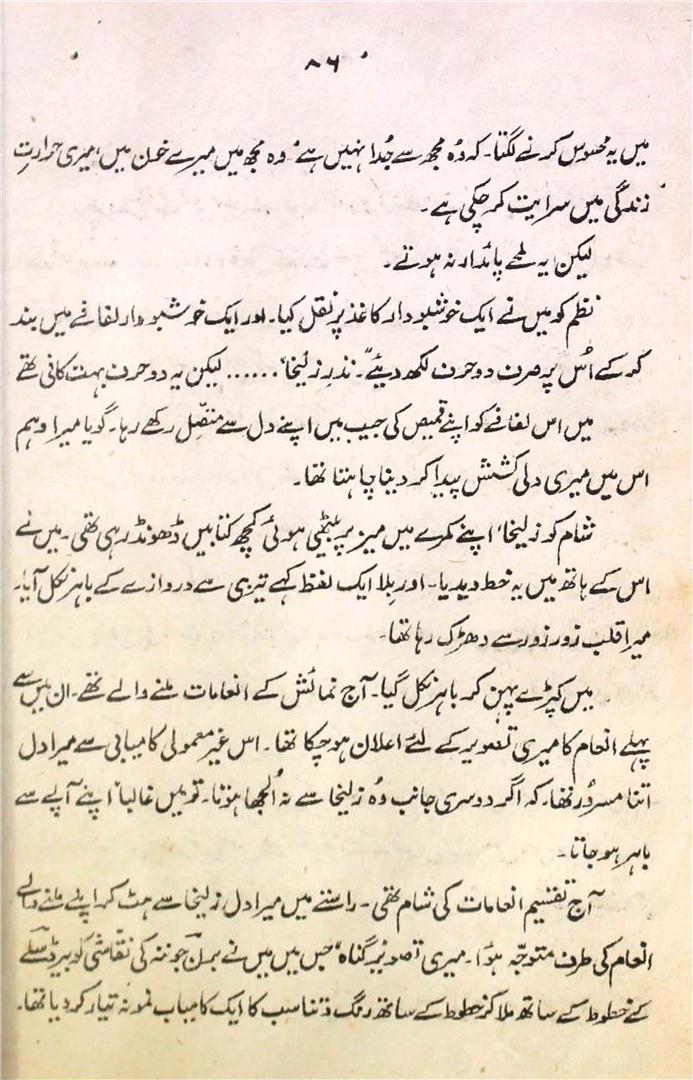 ۸۶
میں یہ محسوس کرنے لگتا۔ کہ وُہ مجھ سے جُدا نہیں ہے، وہ مجھ میں میرے خون میں، میری حرارتِ
زندگی میں سرایت کر چکی ہے۔
لیکن یہ لمحے پائدار نہ ہوتے۔
نظم کو میں نے ایک خوشبودار کاغذ پر نقل کیا۔ اور ایک خوشبودار لفافے میں بند
کر کے اُس پر صرف دو حرف لکھ دیئے "نذرِ زلیخا"...... لیکن یہ دو حرف بہت کافی تھے
میں اس لفافے کو اپنے قمیص کی جیب میں اپنے دل سے متصّل رکھے رہا۔ گویا میرا وہم
اس میں میری دلی کشش پیدا کر دینا چاہتا تھا۔
شام کو زلیخا اپنے کمرے میں میز پر بیٹھی ہوئی کچھ کتابیں ڈھونڈ رہی تھی۔ میں نے
اس کے ہاتھ میں یہ خط دیدیا۔ اور بلا ایک لفظ کہے تیزی سے دروازے کے باہر نکل آیا۔
میرا قلب زور زور سے دھڑک رہا تھا۔
میں کپڑے پہن کر باہر نکل گیا۔ آج نمائش کے انعامات ملنے والے تھے۔ ان میں سے
پہلے انعام کا میری تصویر کے لئے اعلان ہو چکا تھا۔ اس غیر معمولی کامیابی سے میرا دل
اتنا مسرُور تھا۔ کہ اگر دوسری جانب وُہ زلیخا سے نہ اُلجھا ہوتا۔ تو میں غالباً اپنے آپے سے
باہر ہو جاتا۔
آج تقسیم انعامات کی شام تھی۔ راستے میں میرا دل زلیخا سے ہٹ کر اپنے ملنے والے
انعام کی طرف متوجّہ ہوا۔ میری تصویر "گناہ" جس میں میں نے برن جونز کی نقّاشی کو بیرڈسلے
کے خطوط کے ساتھ ملا کر خطوط کے ساتھ رنگ و تناسب کا ایک کامیاب نمونہ تیار کر دیا تھا۔